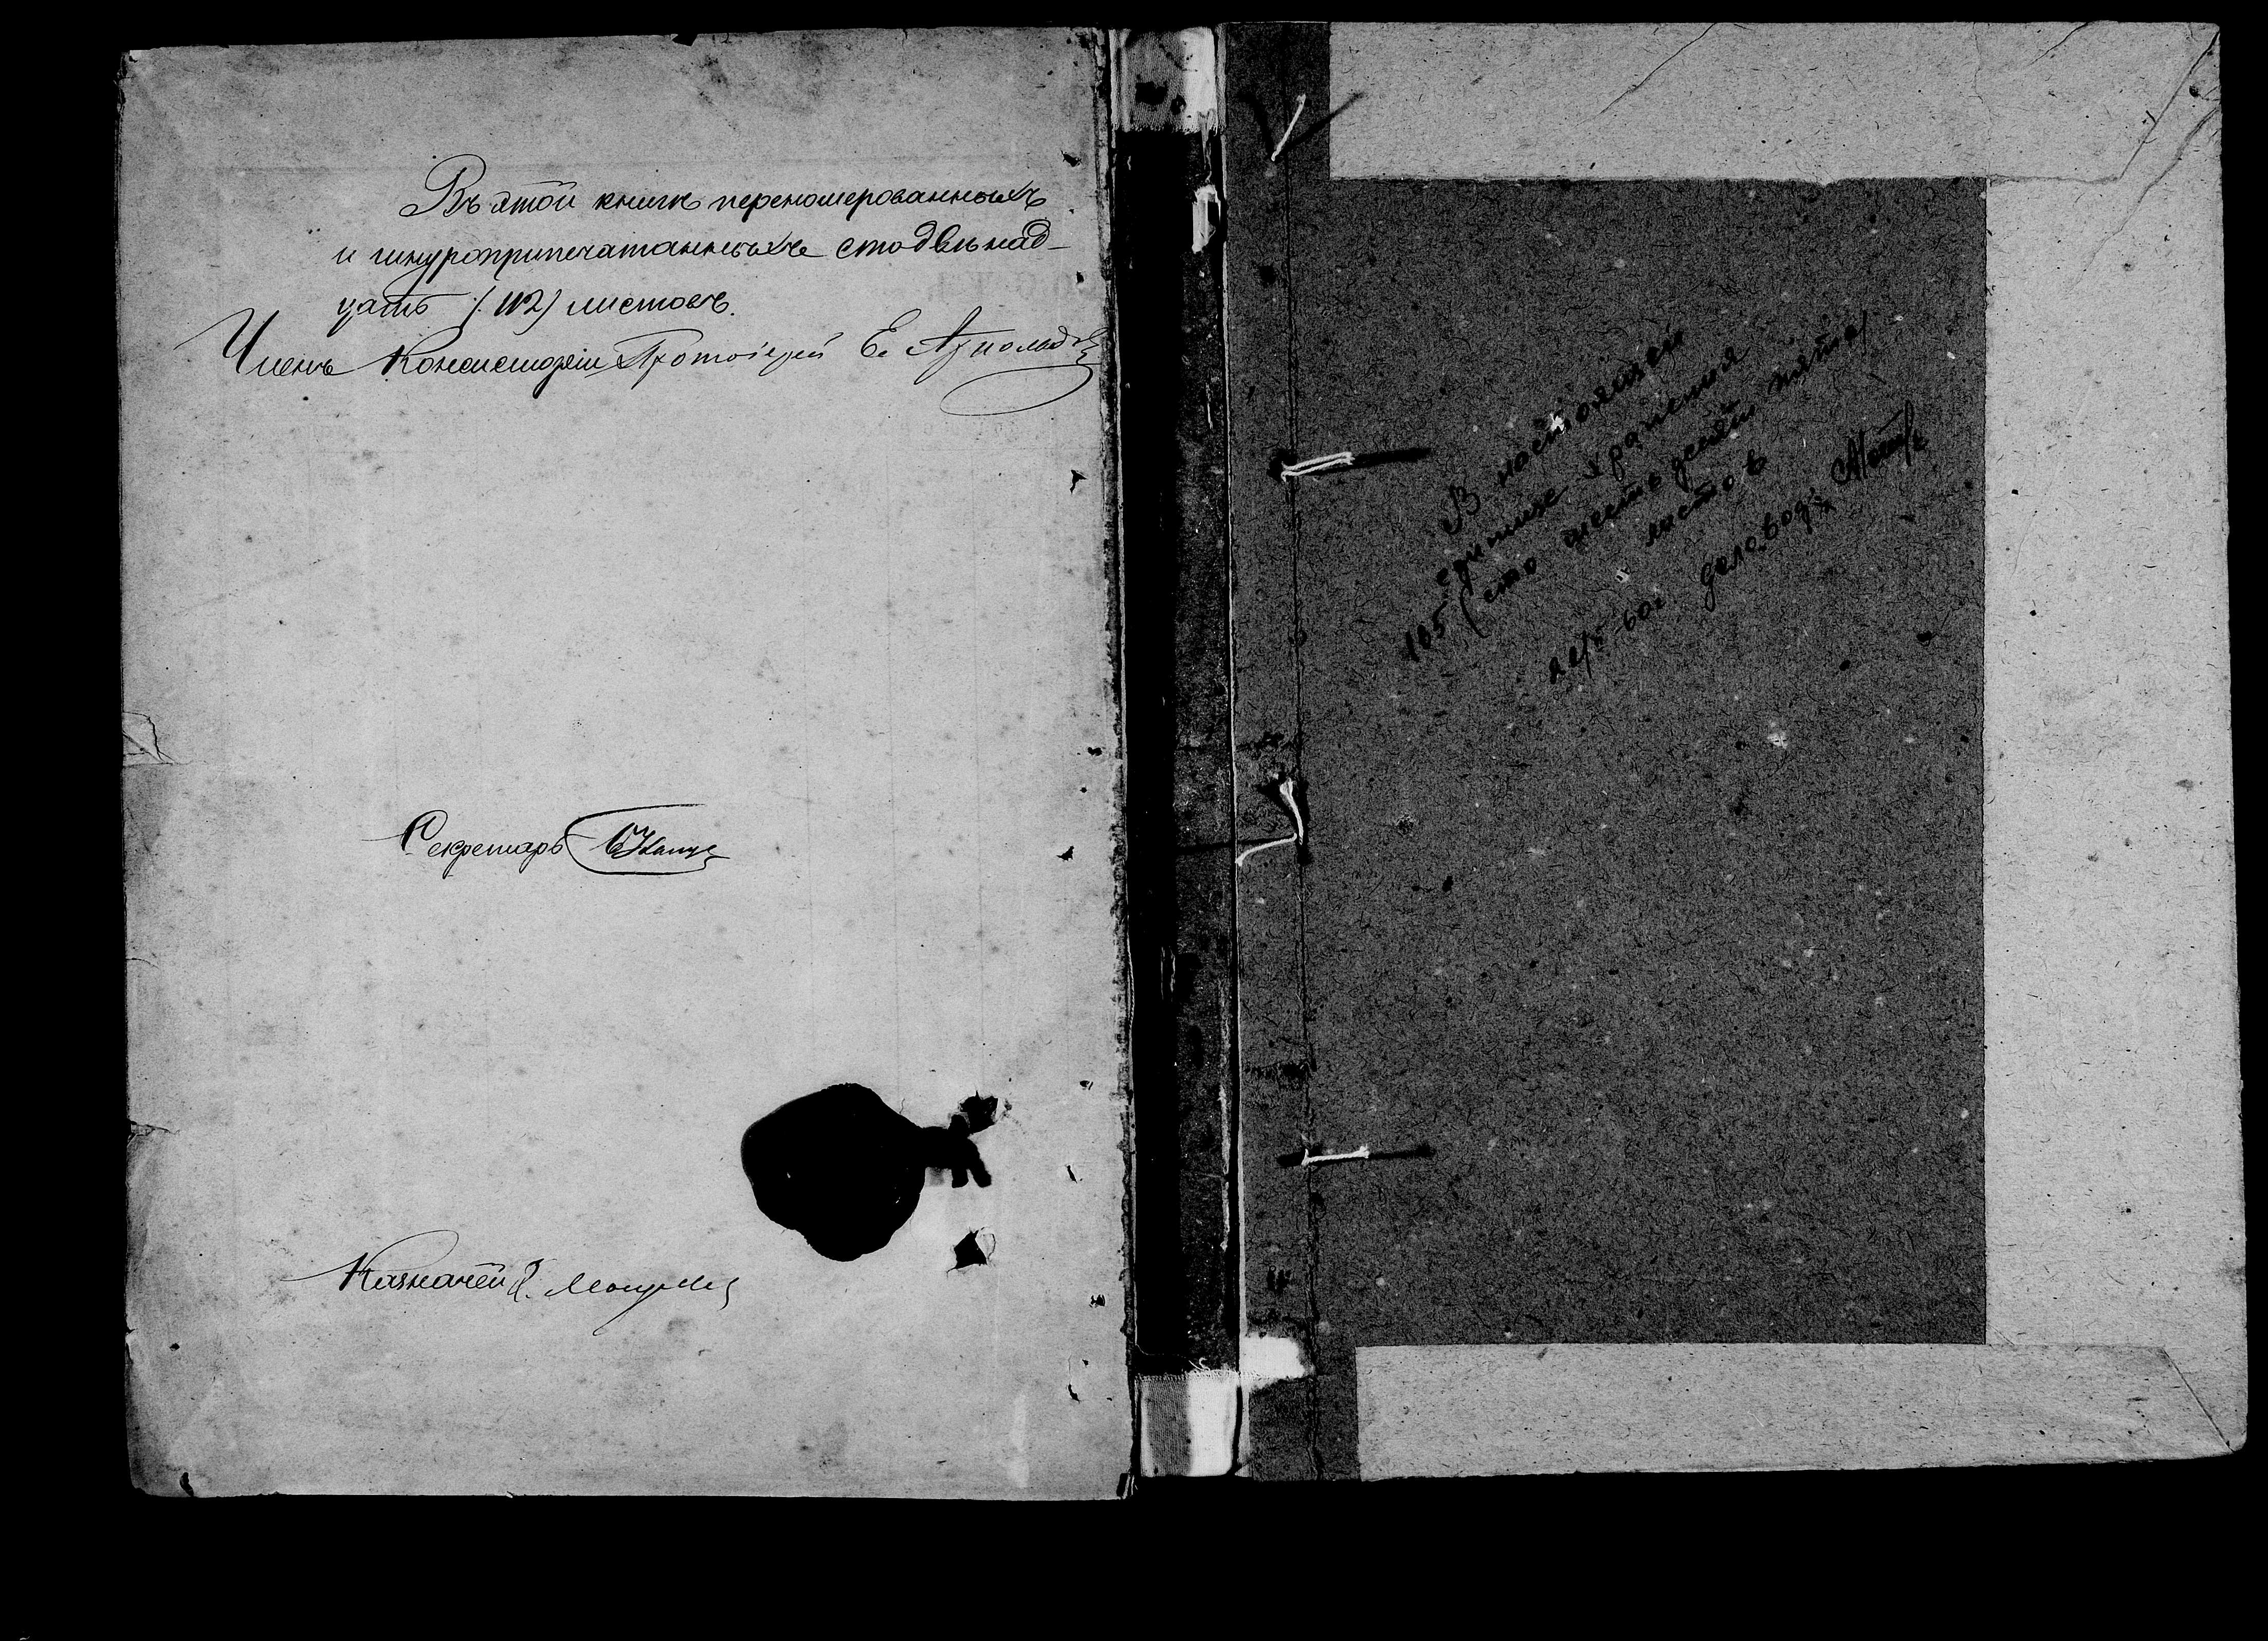 Въ этой книгѣ переномерованныхъ
и шнуроприпечатанныхъ стодвѣнад-
цать /. 112/ листовъ.
Членъ Консисторіи Протоіерей Е. Арнольдовъ
Секретарь
Казначей
В настоящей
единице хранения
165 (сто шестьдесят пять)
листов
60г деловод: